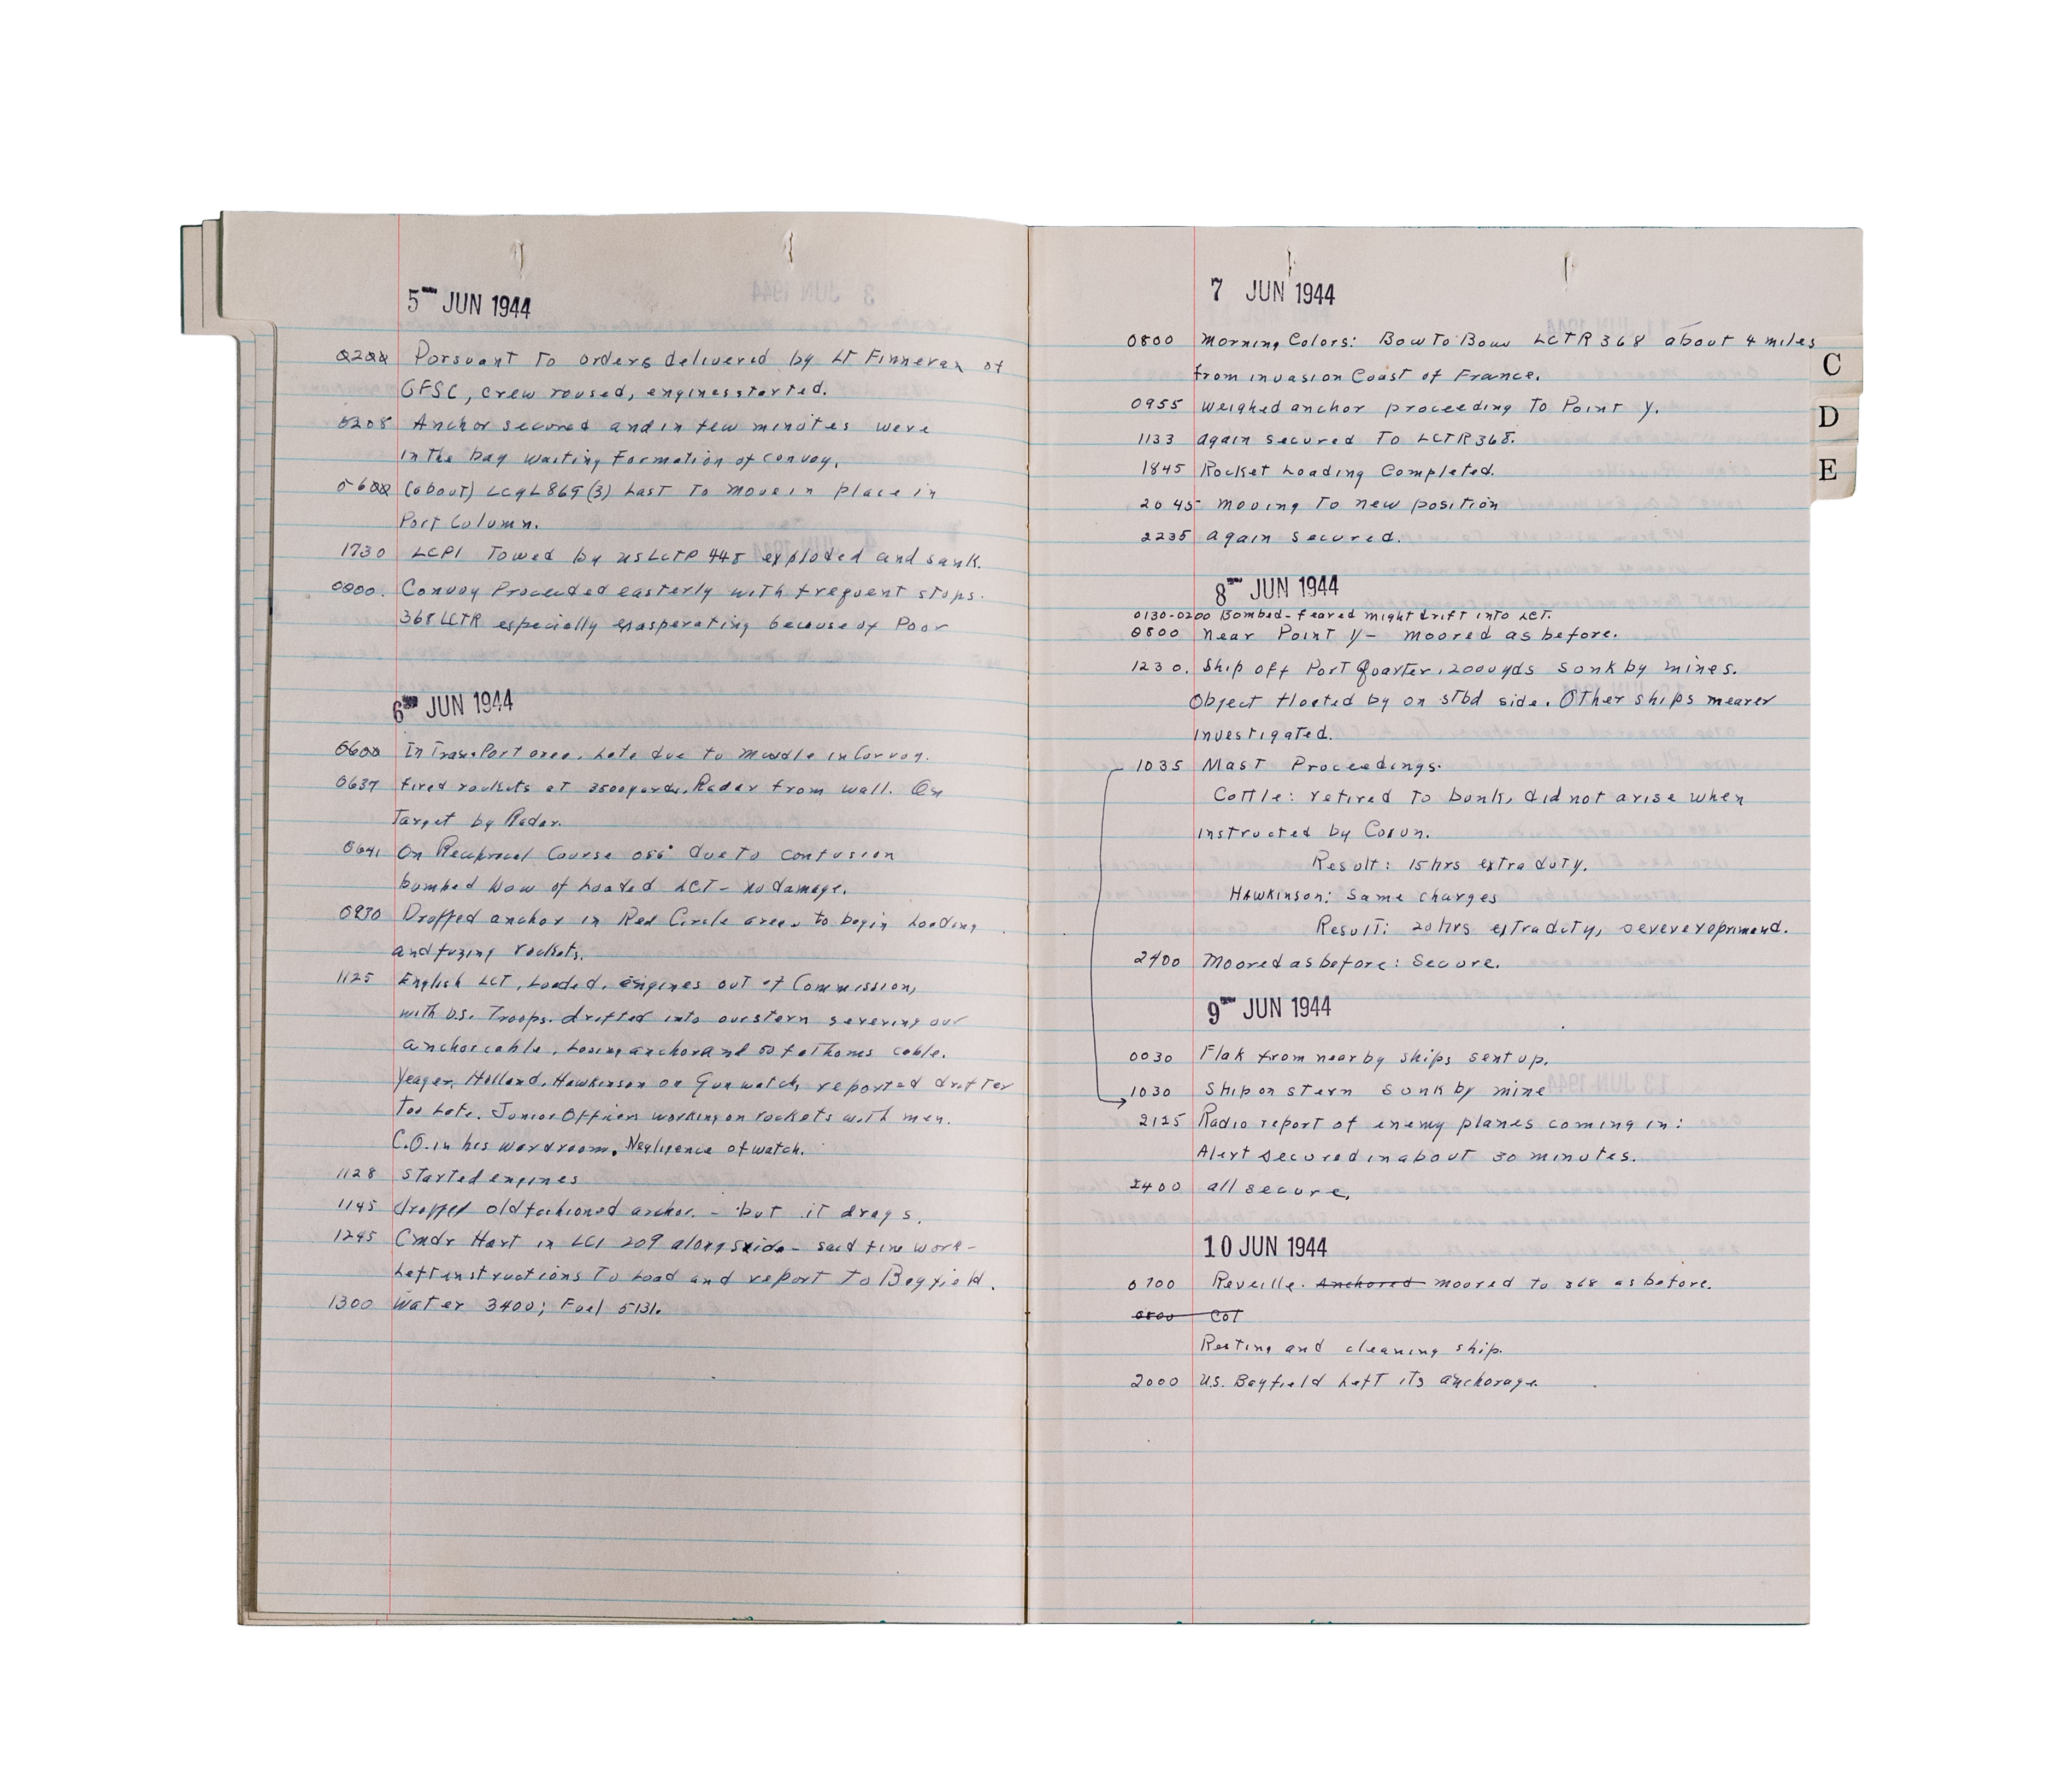 5 JUN 1944
0200 Pursuant to orders delivered by Lt Finneran of
GFSC, crew roused, engines started.
0205 Anchor secured and in few minutes were
in the bay waiting Formation of convoy.
0600 (about) LCGL 869 (3) Last to move in place in
Port Column.
1730 LCP1 Towed by us LCTP 448 exploded and sank.
0000. Convoy Proceeded easterly with frequent stops.
368 LCTR especially exasperating because of Poor
6 JUN 1944
0600 In TransPort area. Late due to Muddle in Convoy.
0637 fired rockets at 3500 yards. Radar from wall. On
Target by Radar.
0641 On Reciprocal Course 056° due to confusion
bumped bow of Loaded LCT - no damage.
0930 Dropped anchor in Red Circle area to begin Loading
and fuzing rockets.
1125 English LCT, Loaded, engines out of Commission,
with U.S. Troops drifted into our stern severing our
anchor cable, Losing anchor and 50 fathoms cable.
Yeager, Holland, Hawkinson on Gun watch, reported drifter
Too Late. Junior Officers working on rockets with men.
C.O. in his wardroom. Negligence of watch.
1128 Started engines
1145 dropped old fashioned anchor - but it drags.
1245 Cmdr Hart in LCI 209 alongside - said fine work -
Left instructions To Load and report to Bayfield.
1300 Water 3400; Fuel 5131.
7 JUN 1944
0800 Morning Colors: Bow To Bow LCTR 368 about 4 miles
from invasion Coast of France.
0955 Weighed anchor proceeding To Point Y.
1133 Again secured To LCTR 368.
1845 Rocket Loading Completed.
2045 Moving To new position
2235 Again secured.
8 JUN 1944
0130-0200 Bombed - feared might drift into LCT.
0800 Near Point Y - moored as before.
1230. Ship off Port Quarter, 2000 yds sunk by mines.
Object floated by on stbd side. Other ships nearer
investigated.
1035 Mast Proceedings.
Cottle: retired to bunk, did not arise when
instructed by Coxun.
Result: 15 hrs extra duty.
Hawkinson: Same charges
Result: 20 hrs extra duty, severe reprimand.
2400 Moored as before: Secure.
9 JUN 1944
0030 Flak from nearby ships sent up.
1030 Ship on stern sunk by mine
2125 Radio report of enemy planes coming in:
Alert secured in about 30 minutes.
2400 all secure.
10 JUN 1944
0700 Reveille. Anchored moored to 368 as before.
0800 Col
Resting and cleaning ship.
2000 U.S. Bayfield Left its anchorage.
C
D
E